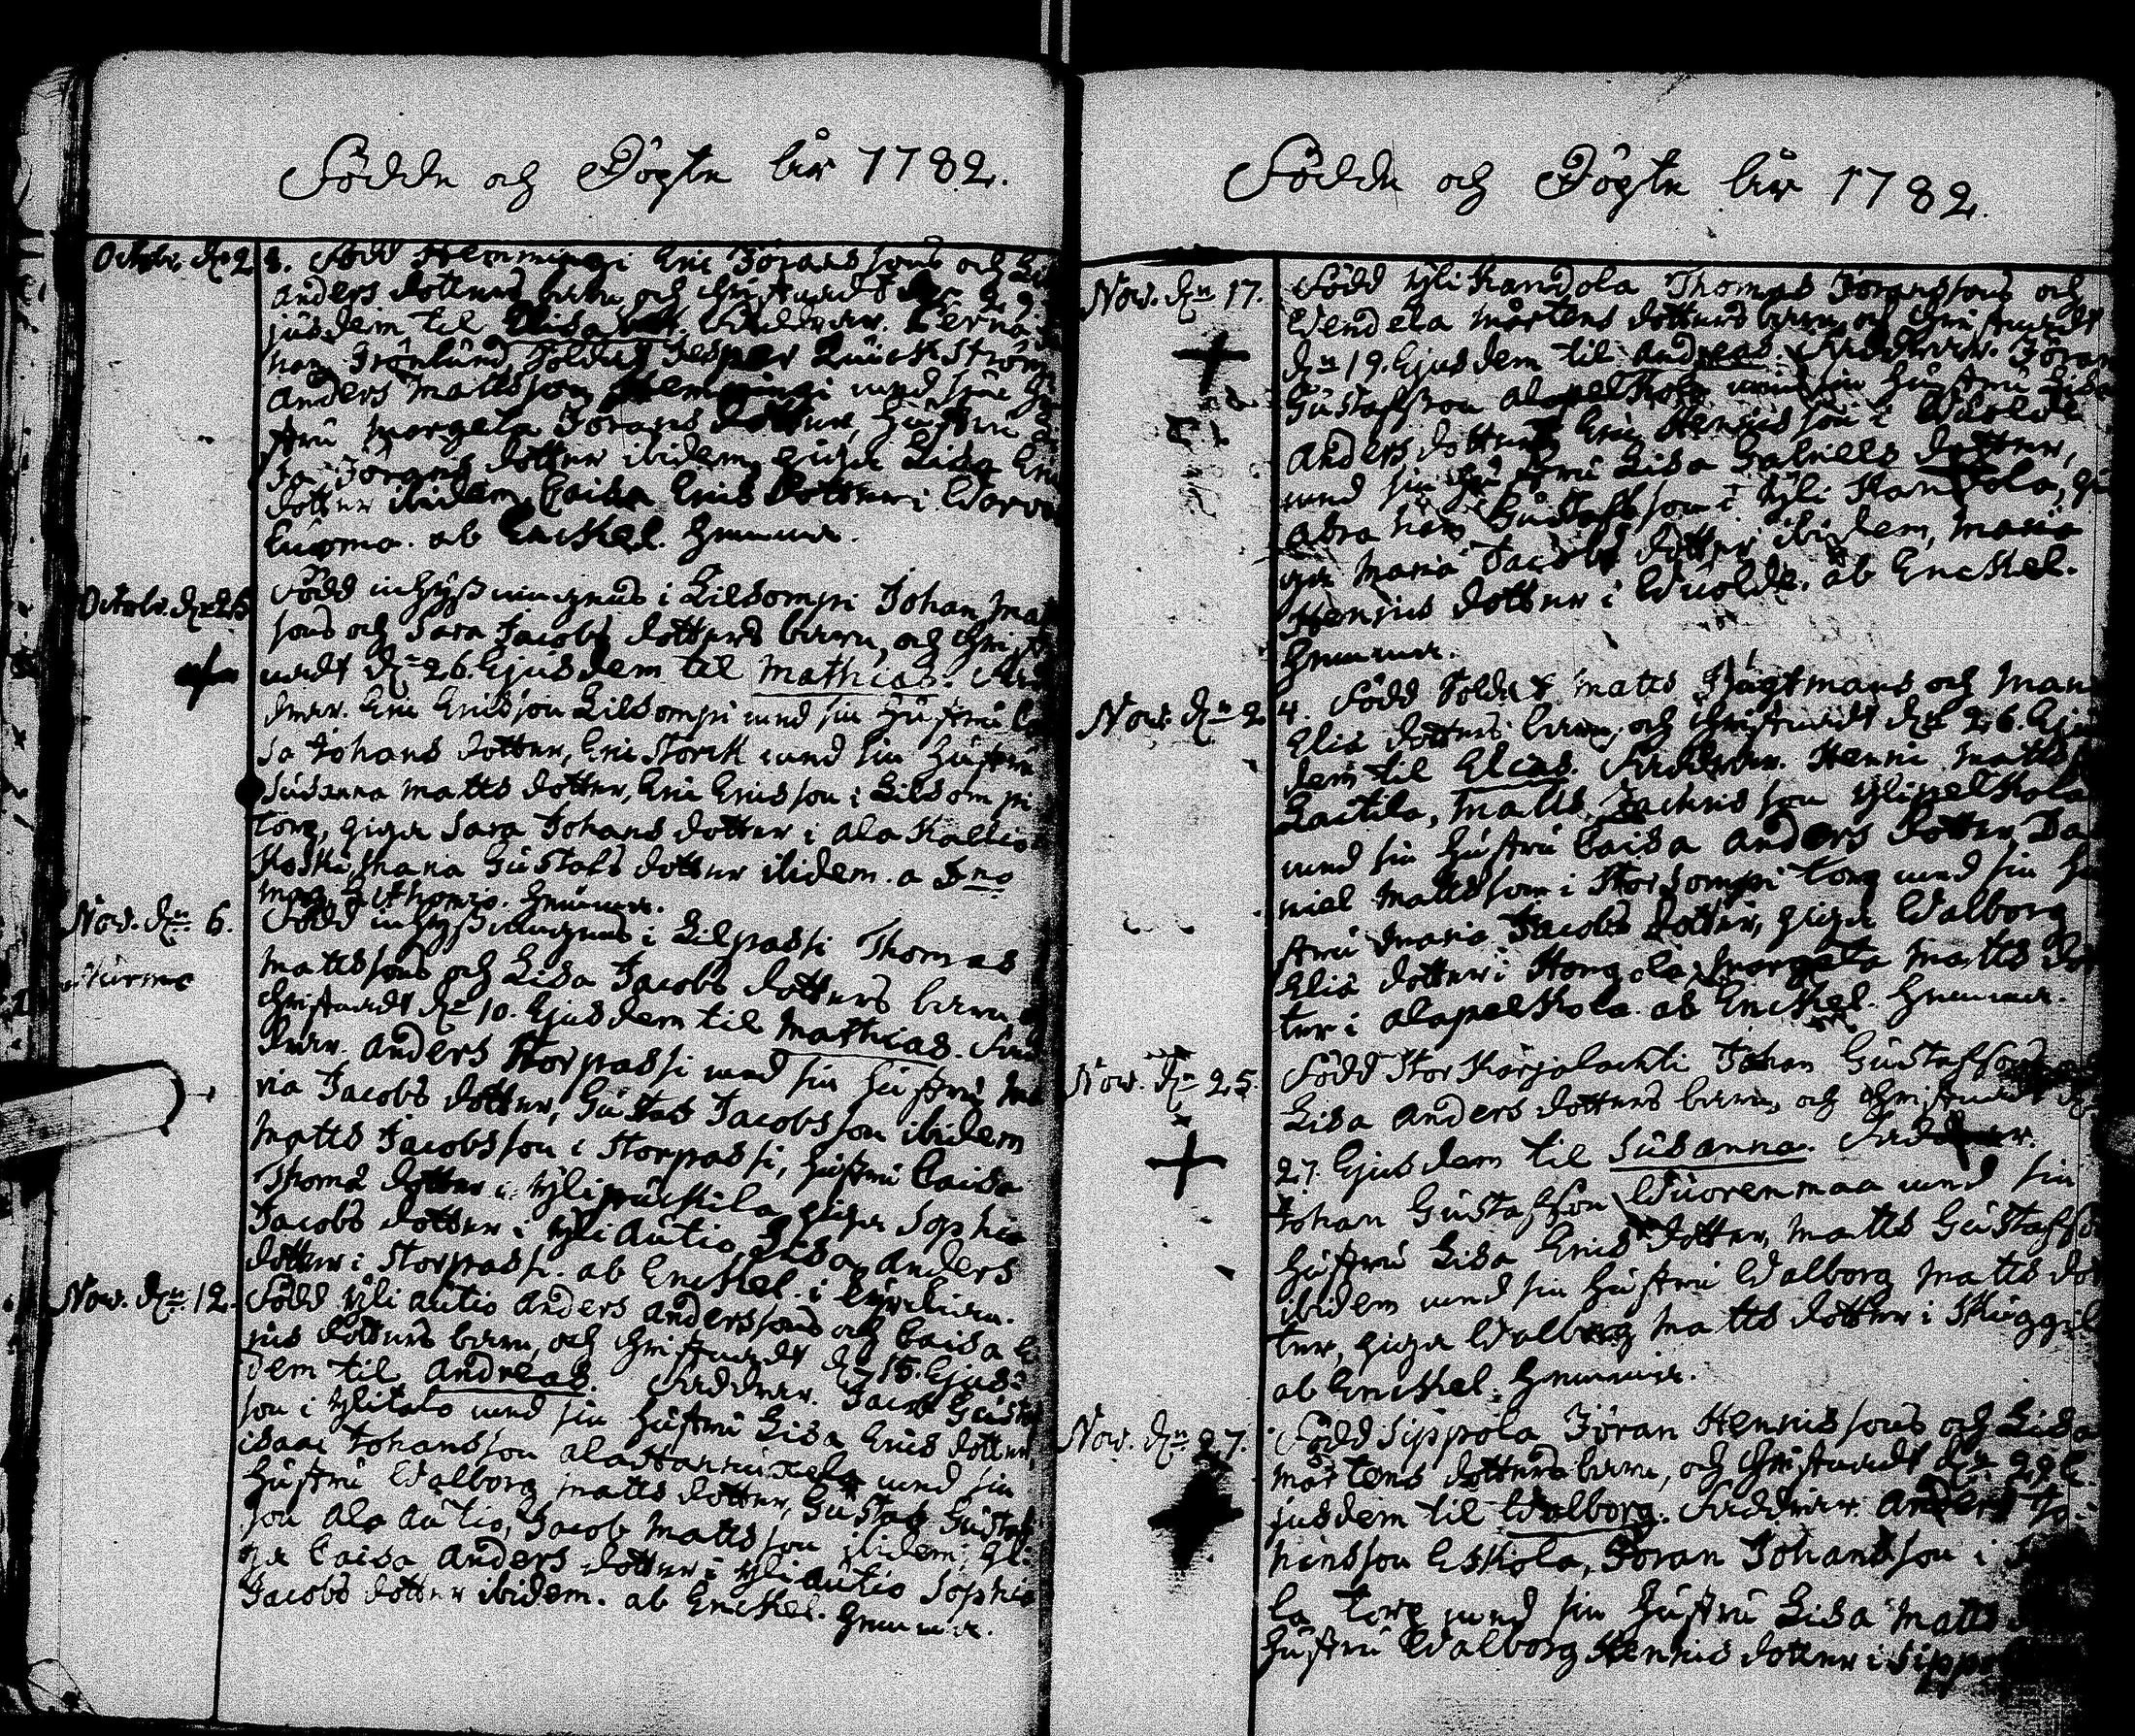 Födde och Dögte år 1782.
Octobr. dn 28. Född Hemmingi Eric Jöransons och
Anders dotters barn, och Christnadt den 29.
jusdem til Elisabet. Faddrar.
han Grönlund, Soldat Jesper Quickström
Anders Mattsson Hemmingi med sin Hu
stru Margeta Jörans dotter, Hustru
Jörans dotter ibidem, piga Lisa Eric
dotter ibidem, Caisa Erics dotter i
ab Enckel. hemma.
Octobr. dn 25 Född inhyses mannens i Lilsompi Johan Mat
sons och Sara Jacobs dotters barn, och Christ
nadt dn 26. Ejusdem til Mathias. Fad
drar. Eric Ericsson Lilsompi med sin Hustru Ca
sa Johans dotter, Eric Storck med sin Hustru
Susanna Matts dotter, Eric Ericsson i Lilsompi
torp, piga Sara Johans dotter i Ala Kallio
koski, Maria Gustafs dotter ibidem. a Dno
Mag. hemma.
Nov. dn 6. Född inhyses mannens i Lilpassi Thomas
Mattssons och Lisa Jacobs dotters barn
Christnadt dn 10. Ejusdem til Mathias. Fad
drar. Anders Storpassi med sin Hustru Ma
ria Jacobs dotter, Gustas Jacobsson ibidem
Matts Jacobsson i Storpassi, Hustru Caisa
Thoma dotter i Ylipuckila, piga Sophia
Jacobs dotter i Yliautio, Lisa Anders
dotter i Storpassi. ab Enckel. i Kyrckian.
Nov. dn 12. Född Yli autio Anders Anderssons och Caisa E
rics dotters barn, och Christnadt dn 15. Ejus
dem til Andreas. Faddrar. Jacob Gustaf
son i Ylitalo med sin Hustru Lisa Erics dotter,
isaac Johansson med sin
Hustru Walborg Matts dotter, Gustas Gustaf
son Ala autio, Jacob Matts son ibidem, pi
ga Caisa Anders dotter i Yliautio Sophia
Jacobs dotter ibidem. ab Enckel. hemma.
Födde och Dögte år 1782.
Nov. dn 17. Född Yli Kandola Thomas Jöranssons och
Wendela Mårtens dotters barn, och Christnadt
dn 19. Ejusdem til Andreas. Faddrar. Jöran
Gustafsson Alapelkola med sin Hustru Lisa
Anders dotter, Eric Henricsson i Wuolde
med sin Hustru Lisa Gabriels dotter,
Abraham Gustafsson i Yli Kandola, pi
ga Maria Jacobs dotter ibidem, Maria
Henrics dotter i Wuolde. ab Enckel.
hemma.
Nov. dn 24. Född Soldat Matts Frögtmans och Mari
Elia dotters barn, och Christnadt dn 26. Ejus
dem til Elias. Faddrar. Henric Matts
Laitila, Matts Zachrisson Ylipelkola
med sin Hustru Caisa Anders dotter, Da
niel Mattsson i Storsompi torp med sin Hu
stru Maria Jacobs dotter, piga Walborg
Elia dotter i Hongola, Margeta Matts dot
ter i Alapelkola. ab Enckel. hemma.
Nov. dn 25. Född Stor Karjalachti Johan Gustafsons
Lisa Anders dotters barn, och Christnadt dn
27. Ejusdem til Susanna. Faddrar.
Johan Gustafsson Wuorenmaa med sin
Hustru Lisa Erics dotter, Matts Gustafsson
ibidem med sin Hustru Walborg Matts dot
ter, piga Walborg Matts dotter i
ab Enckel. hemma.
Nov. dn 27. Född Sippola Jöran Henricssons och Lisa
Mårtens dotters barn, och Christnadt dn 29 E
jusdem til Walborg. Faddrar. Anders
hansson Eskola, Jöran Johansson i
la torp med sin Hustru Lisa Matts
Hustru Walborg Henrics dotter i Sippo